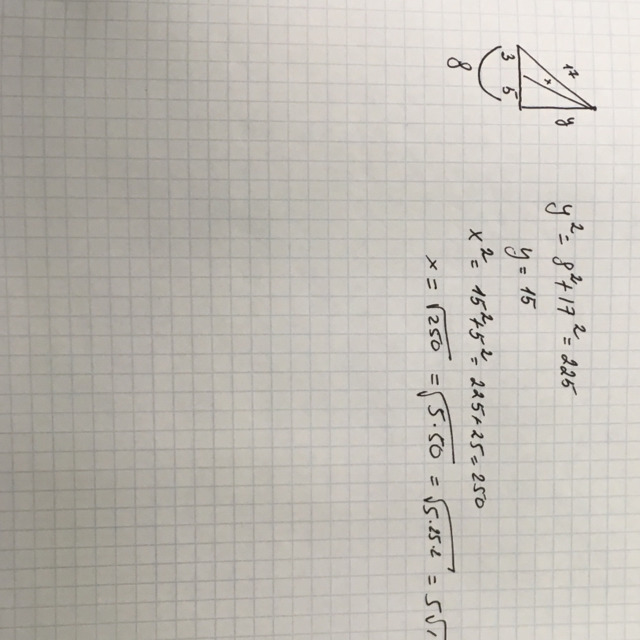 17
3 x
8
5
y
y² = 8² + 17² = 225
y = 15
x² = 15² + 5² = 225 + 25 = 250
x = √250 = √5·50 = √5·25·2 = 5√